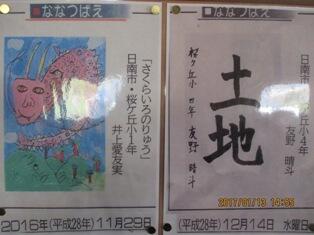 ななつばえ
「さくらいろのりゅう」
日南市・桜ケ丘小1年
井上愛友実
2016年(平成28年)11月29日
ななつばえ
土地
桜ヶ丘小 四年 友野 晴斗
桜ケ丘小4年
友野 晴斗
(平成28年)12月14日 水曜日
2017/01/13 14:55